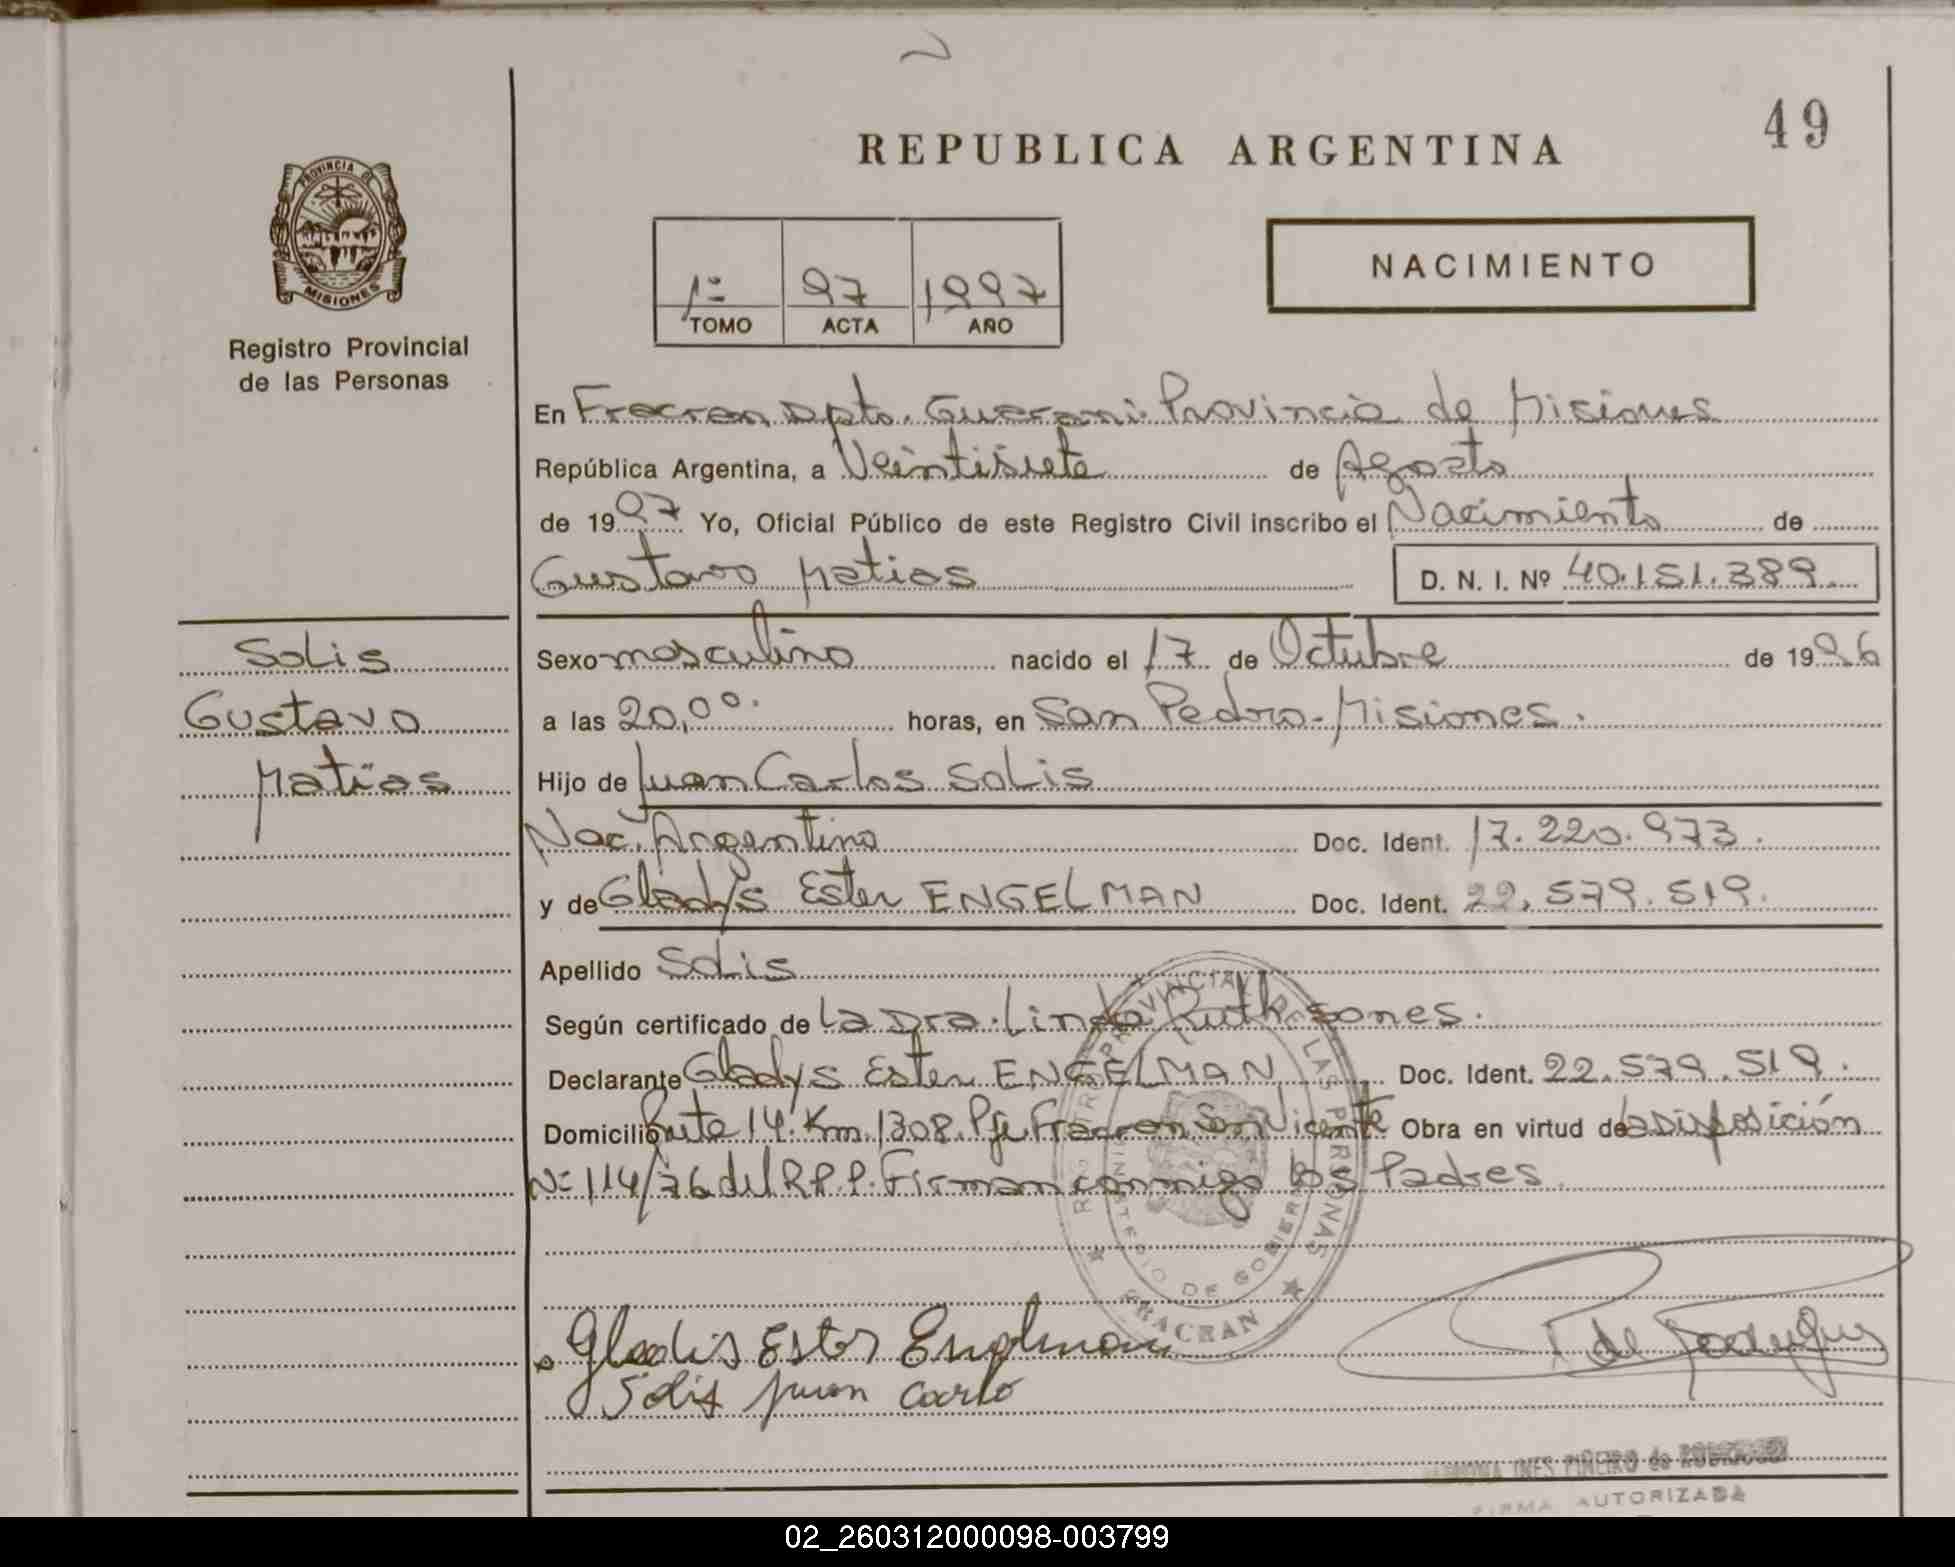 49
REPUBLICA ARGENTINA
PROVINCIA DE
MISIONES
Registro Provincial
de las Personas
NACIMIENTO
1º 97 1997
TOMO ACTA AÑO
En Fracran, Dpto. Guarani. Provincia de Misiones
República Argentina, a Veintisiete de Agosto
de 1997 Yo, Oficial Público de este Registro Civil inscribo el Nacimiento de
Gustavo Matias D. N. I. Nº 40.151.389.
Solis
Gustavo
Matias
Sexo masculino nacido el 17 de Octubre de 1996
a las 20,00. horas, en San Pedro-Misiones.
Hijo de Juan Carlos Solis
Nac. Argentina Doc. Ident. 17.220.973.
y de Gladys Ester ENGELMAN Doc. Ident. 22.579.519.
Apellido Solis
Según certificado de La Dra. Linda Ruth Sones.
Declarante Gladys Ester ENGELMAN Doc. Ident. 22.579.519.
Domicilio Ruta 14. Km. 1308. Pje. Fracran San Vicente Obra en virtud de la Disposición
Nº 114/76 del R.P.P. Firman conmigo los Padres
REGISTRO PROVINCIAL DE LAS PERSONAS
MINISTERIO DE GOBIERNO
FRACRAN
Gladis Ester Englman
Solis Juan Carlo
INES PIÑEIRO de
FIRMA AUTORIZADA
02_260312000098-003799